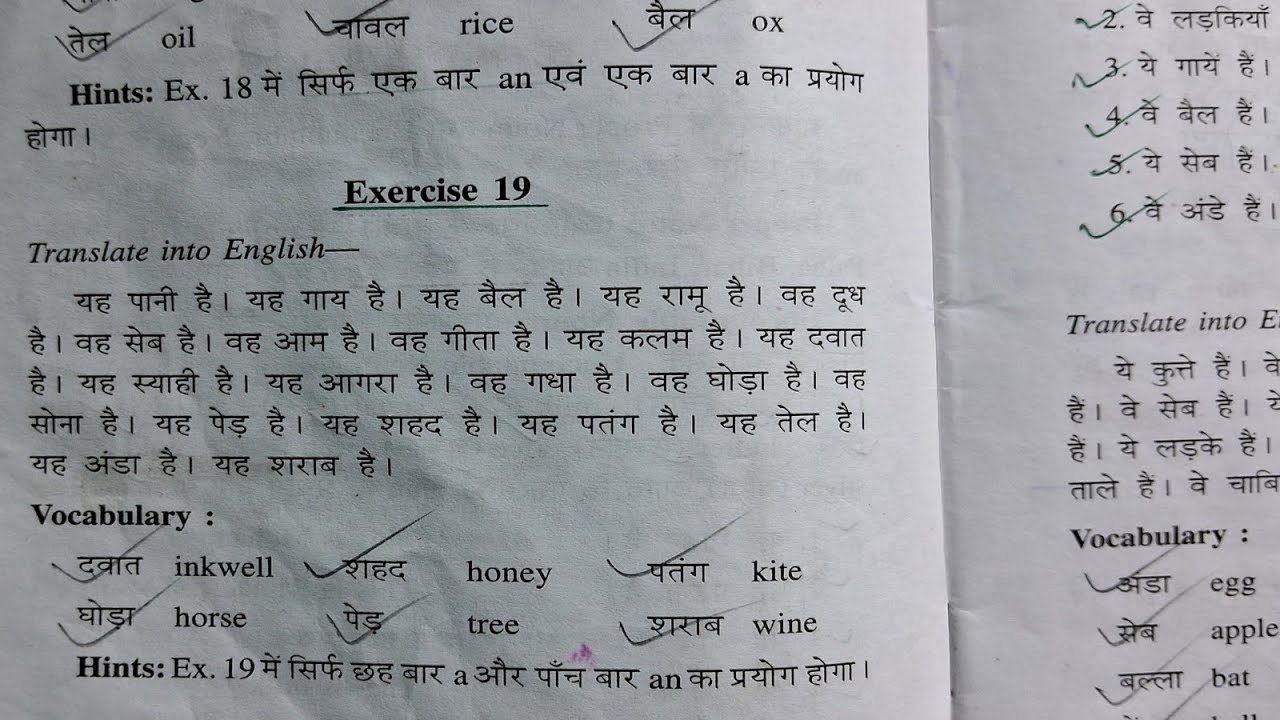 तेल oil चावल rice बैल ox
Hints: Ex. 18 में सिर्फ एक बार an एवं एक बार a का प्रयोग
होगा।
Exercise 19
Translate into English—
यह पानी है। यह गाय है। यह बैल है। यह रामू है। वह दूध
है। वह सेब है। वह आम है। वह गीता है। यह कलम है। यह दवात
है। यह स्याही है। यह आगरा है। वह गधा है। वह घोड़ा है। वह
सोना है। यह पेड़ है। यह शहद है। यह पतंग है। यह तेल है।
यह अंडा है। यह शराब है।
Vocabulary :
दवात inkwell शहद honey पतंग kite
घोड़ा horse पेड़ tree शराब wine
Hints: Ex. 19 में सिर्फ छह बार a और पाँच बार an का प्रयोग होगा।
2. वे लड़कियाँ
3. ये गायें हैं।
4. वे बैल हैं।
5. ये सेब हैं।
6. वे अंडे हैं।
Translate into E
ये कुत्ते हैं। वे
हैं। वे सेब हैं। ये
हैं। ये लड़के हैं।
ताले हैं। वे चाबि
Vocabulary :
अंडा egg
सेब apple
बल्ला bat